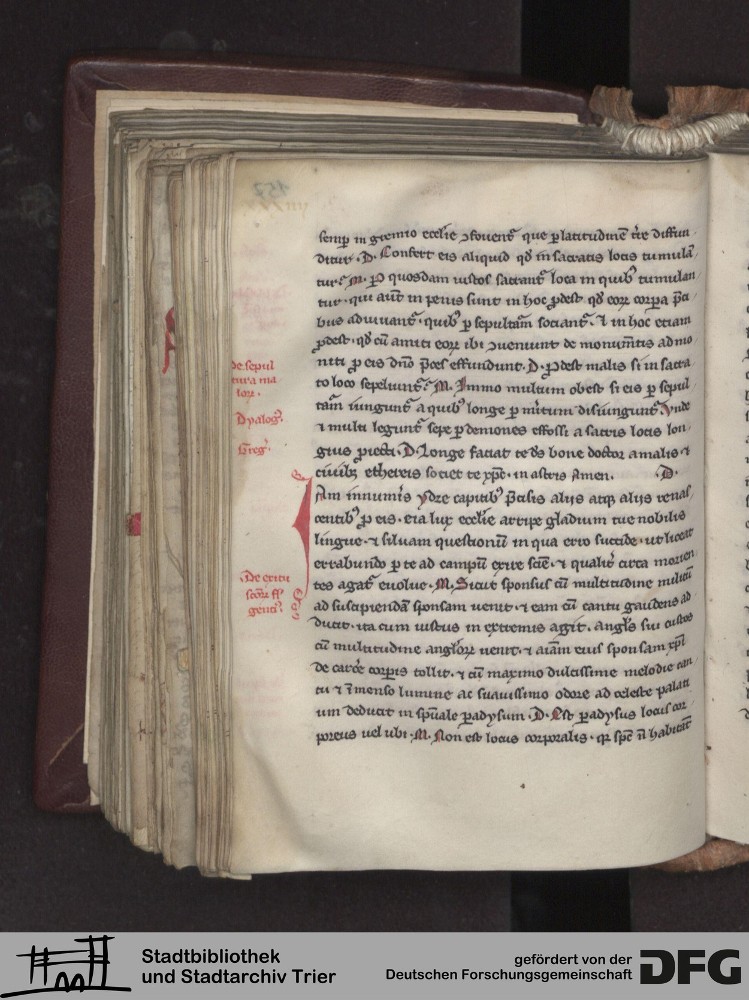 semp in gremio ecclie ꝯfouent᷑ que p latitudinē t̄re diffun
ditur. D. Confert eis aliquid qd̓ in sacratis locis tumulā
tur? M. P quosdam iustos sacrant᷑ loca in quib᷒ tumulan
tur. qui aūt in penis sunt in hoc ꝓdest. qd̓ eoꝝ corpa p̄a
bus adiuuant᷑. quib᷒ p sepultam sociant᷑. ⁊ in hoc etiam
ꝓdest. qd̓ cū amici eoꝝ ibi ꝯueniunt de monumtis admo
niti p eis dn̄o p̄ces effundunt. D. Ꝓdest malis si in sacra
to loco sepeliunt᷑? M. Immo multum obest si eis p sepul
tam iungunt᷑ a quib᷒ longe p m̄itum disiungunt᷑. Vnde
⁊ multi legunt᷑ sepe p demones effossi a sacris locis lon
gius ꝓiecti. D. Longe faciat te ds̄ bone doctor a malis ⁊
ciuib᷒ ethereis societ te xp̄c. in astris Amen. D.
Iam innumis ydre capitib᷒ p̄cisis alijs atqꝫ alijs renas
centib᷒ p eis. eia lux ecclie arripe gladium tue nobilis
lingue. ⁊ siluam questionū in qua erro succide. ut liceat
errabundo p te ad campū exire scīe. ⁊ qualit̓ circa morien
tes agat᷑ euolue. M. Sicut sponsus cū multitudine militū
ad suscipiendā sponsam uenit. ⁊ eam cū cantu gaudens ad
ducit. ita cum iustus in extremis agit. angl̓s sui custos
cū multitudine angl̓oꝝ uenit. ⁊ aīam eius sponsam xp̄i
de carc̓e corpis tollit. ⁊ cū maximo dulcissime melodie can
tu ⁊ īmenso lumine ac suauissimo odore ad celeste palati
um deducit in sp̄uale padysum. D. Est padysus locus cor
poreus uel ubi. M. Non est locus corporalis. qꝛ sp̄c n̄ habitāt
de sepul
tura ma
loꝝ.
Dyalog᷒.
Greg᷒.
De exitu
Stadtbibliothek
und Stadtarchiv Trier
gefördert von der
Deutschen Forschungsgemeinschaft
DFG